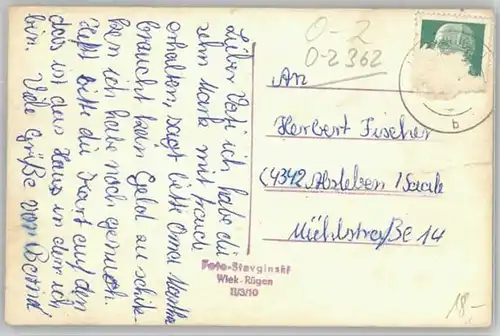 Lieber Vati ich habe die
zehn Mark mit freude
erhalten, sagt bitte Oma Martha
braucht kein Geld zu schik-
ken ich habe noch genug.
Hept bitte die Kart auf den
das ist das Haus in dem ich
bin. Viele Grüße von Bernd
O-2
O-2 362
An
Herbert Fischer
(4342 Alsleben / Saale
Mühlstraße 14
Foto-Stavginski
Wiek-Rügen
II/3/10
b
18,-